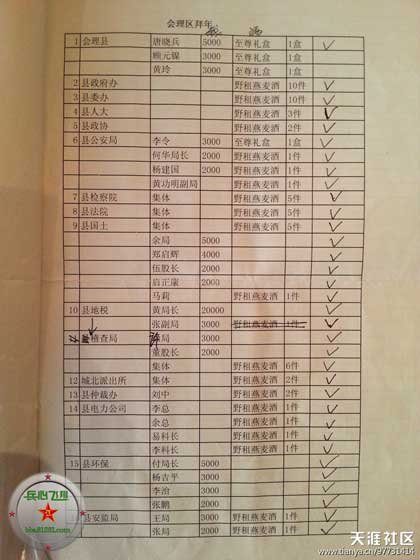 会理区拜年
1 会理县 唐晓兵 5000 至尊礼盒 1盒
顾元镍 3000 至尊礼盒 1盒
黄玲 3000 至尊礼盒 1盒
2 县政府办 野租燕麦酒 10件
3 县委办 野租燕麦酒 10件
4 县人大 野租燕麦酒 3件
5 县政协 野租燕麦酒 2件
6 县公安局 李令 3000 至尊礼盒 1盒
何华局长 2000 野租燕麦酒 1件
杨建国 2000 野租燕麦酒 1件
黄功明副局 野租燕麦酒 1件
7 县检察院 集体 野租燕麦酒 5件
8 县法院 集体 野租燕麦酒 5件
9 县国土 集体 野租燕麦酒 5件
余局 5000
郑启辉 4000
伍股长 2000
启正康 2000
马莉 野租燕麦酒 1件
10 县地税 黄局长 20000
张副局 3000 野租燕麦酒 1件
稽查局 局 3000
董股长 2000
集体 野租燕麦酒 6件
12 城北派出所 集体 野租燕麦酒 2件
13 县仲裁办 刘中 2000 野租燕麦酒 2件
14 县电力公司 李总 野租燕麦酒 1件
余总 野租燕麦酒 1件
易科长 野租燕麦酒 1件
李科长 野租燕麦酒 1件
15 县环保 付局长 5000
杨吉平 3000
李治 3000
张鹏 2000
县安监局 王局 3000 野租燕麦酒 1件
张局 2000 野租燕麦酒 1件
民心飞想
bbs.81281.com
天涯社区
www.tianya.cn/97731414